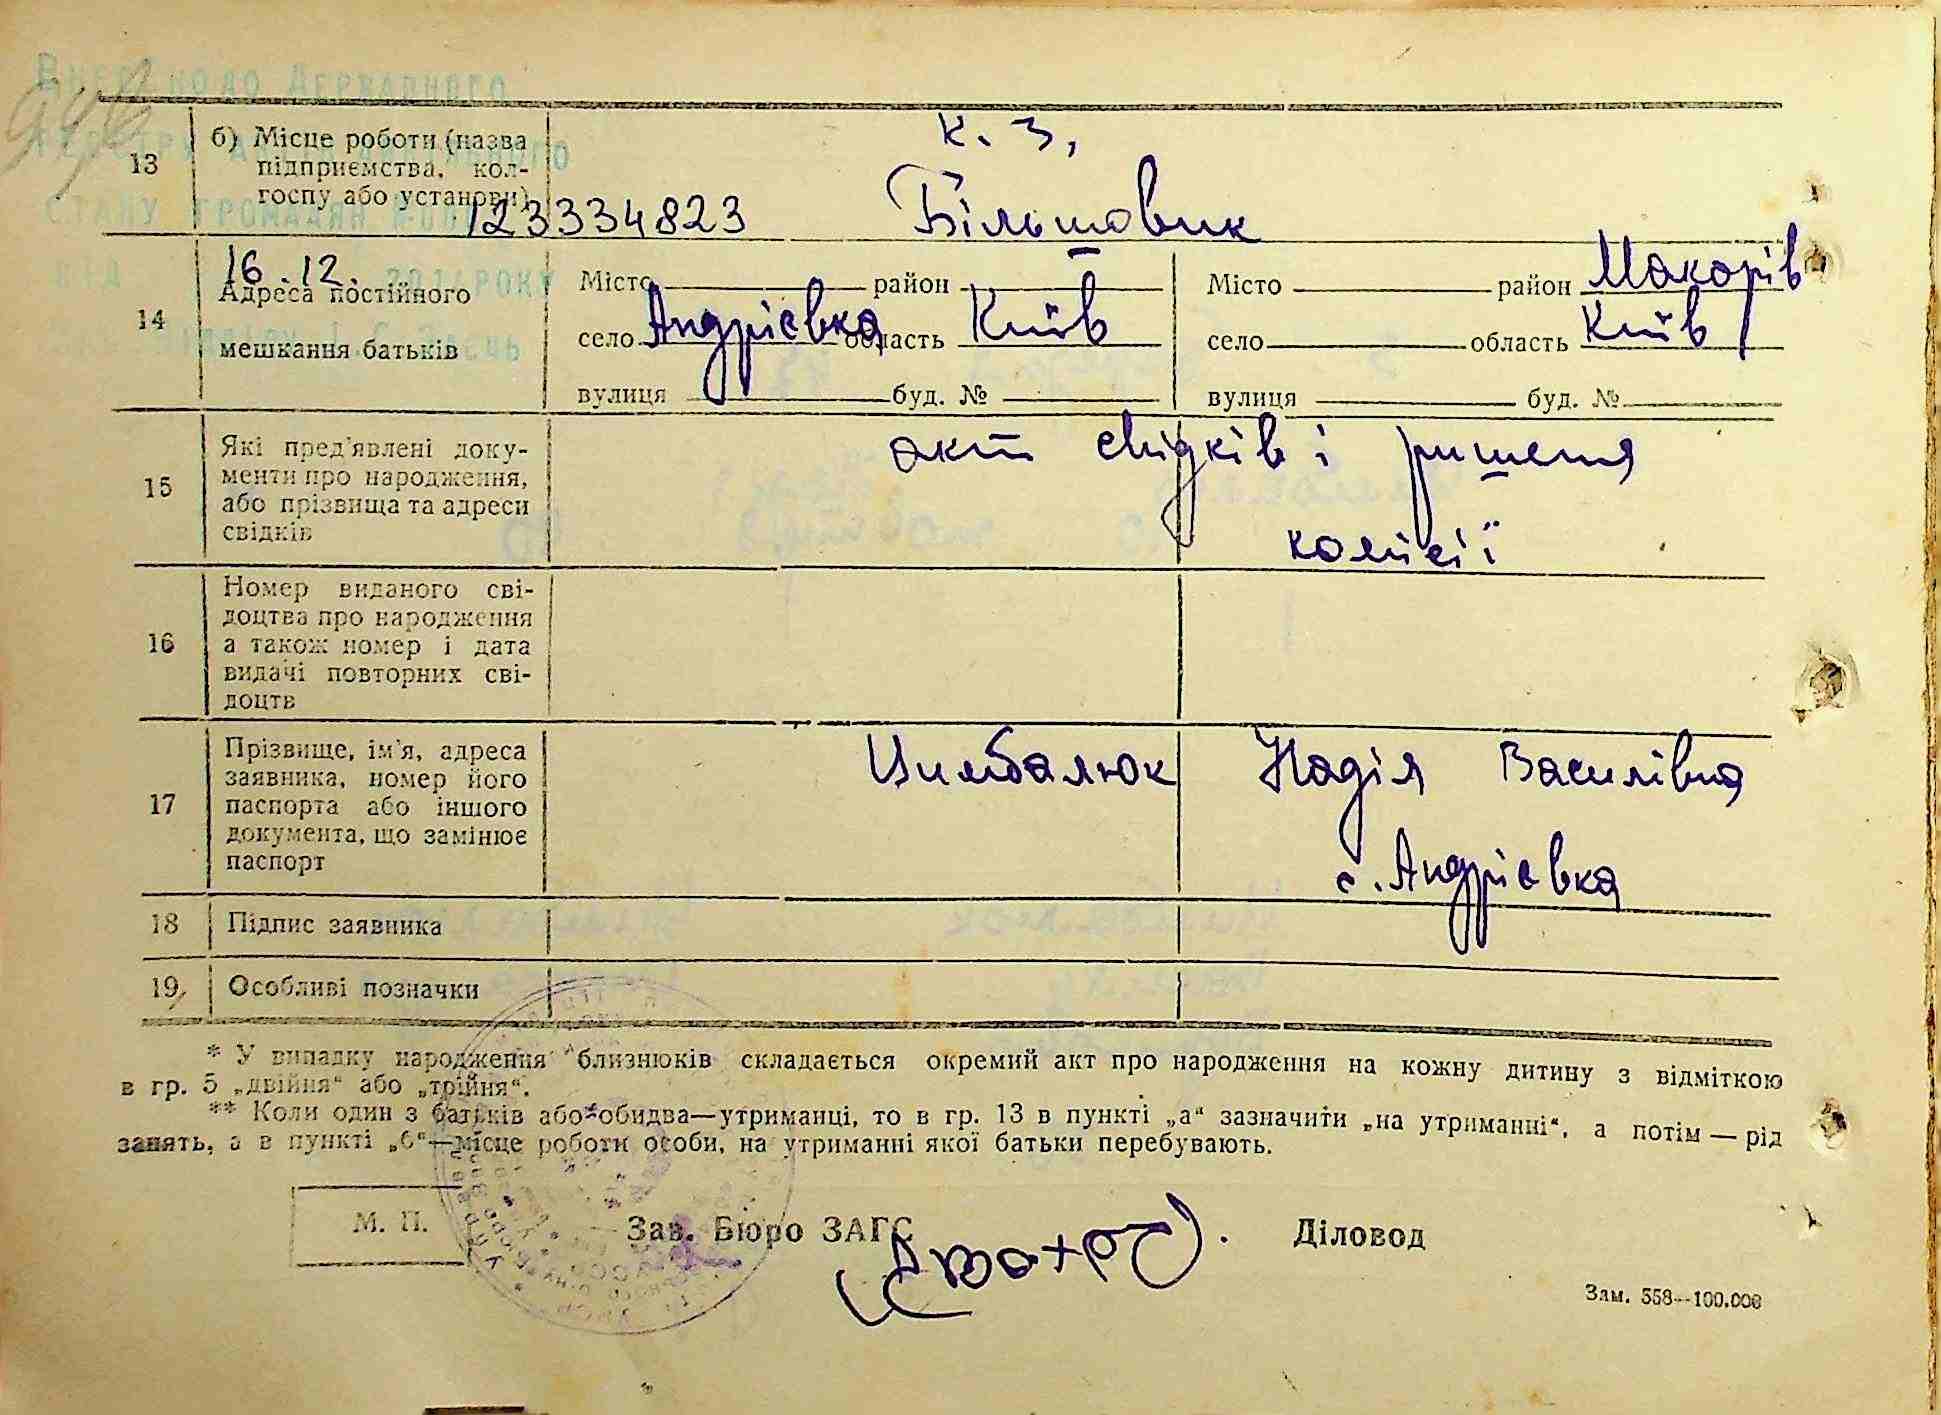 Внесено до Державного
реєстру актів цивільного
стану громадян
123334823
від 16.12. 2011 року
13
б) Місце роботи (назва
підприємства, кол-
госпу або установи)
к. з,
Більшовик
14
Адреса постійного
мешкання батьків
Місто район
село Андрієвка область Київ
вулиця буд. №
Місто район Макарів
село область Київ
вулиця буд. №
15
Які пред'явлені доку-
менти про народження,
або прізвища та адреси
свідків
акт свідків і ришення
комісії
16
Номер виданого сві-
доцтва про народження
а також номер і дата
видачі повторних сві-
доцтв
17
Прізвище, ім'я, адреса
заявника, номер його
паспорта або іншого
документа, що замінює
паспорт
Цимбалюк Надія Василівна
с. Андрієвка
18 Підпис заявника
19 Особливі позначки
* У випадку народження близнюків складається окремий акт про народження на кожну дитину з відміткою
в гр. 5 „двійня“ або „трійня“.
** Коли один з батьків або обидва—утриманці, то в гр. 13 в пункті „а“ зазначити „на утриманні“, а потім — рід
занять, а в пункті „б“—місце роботи особи, на утриманні якої батьки перебувають.
М. П.
Зав. Бюро ЗАГС Діловод
Зам. 558—100.000